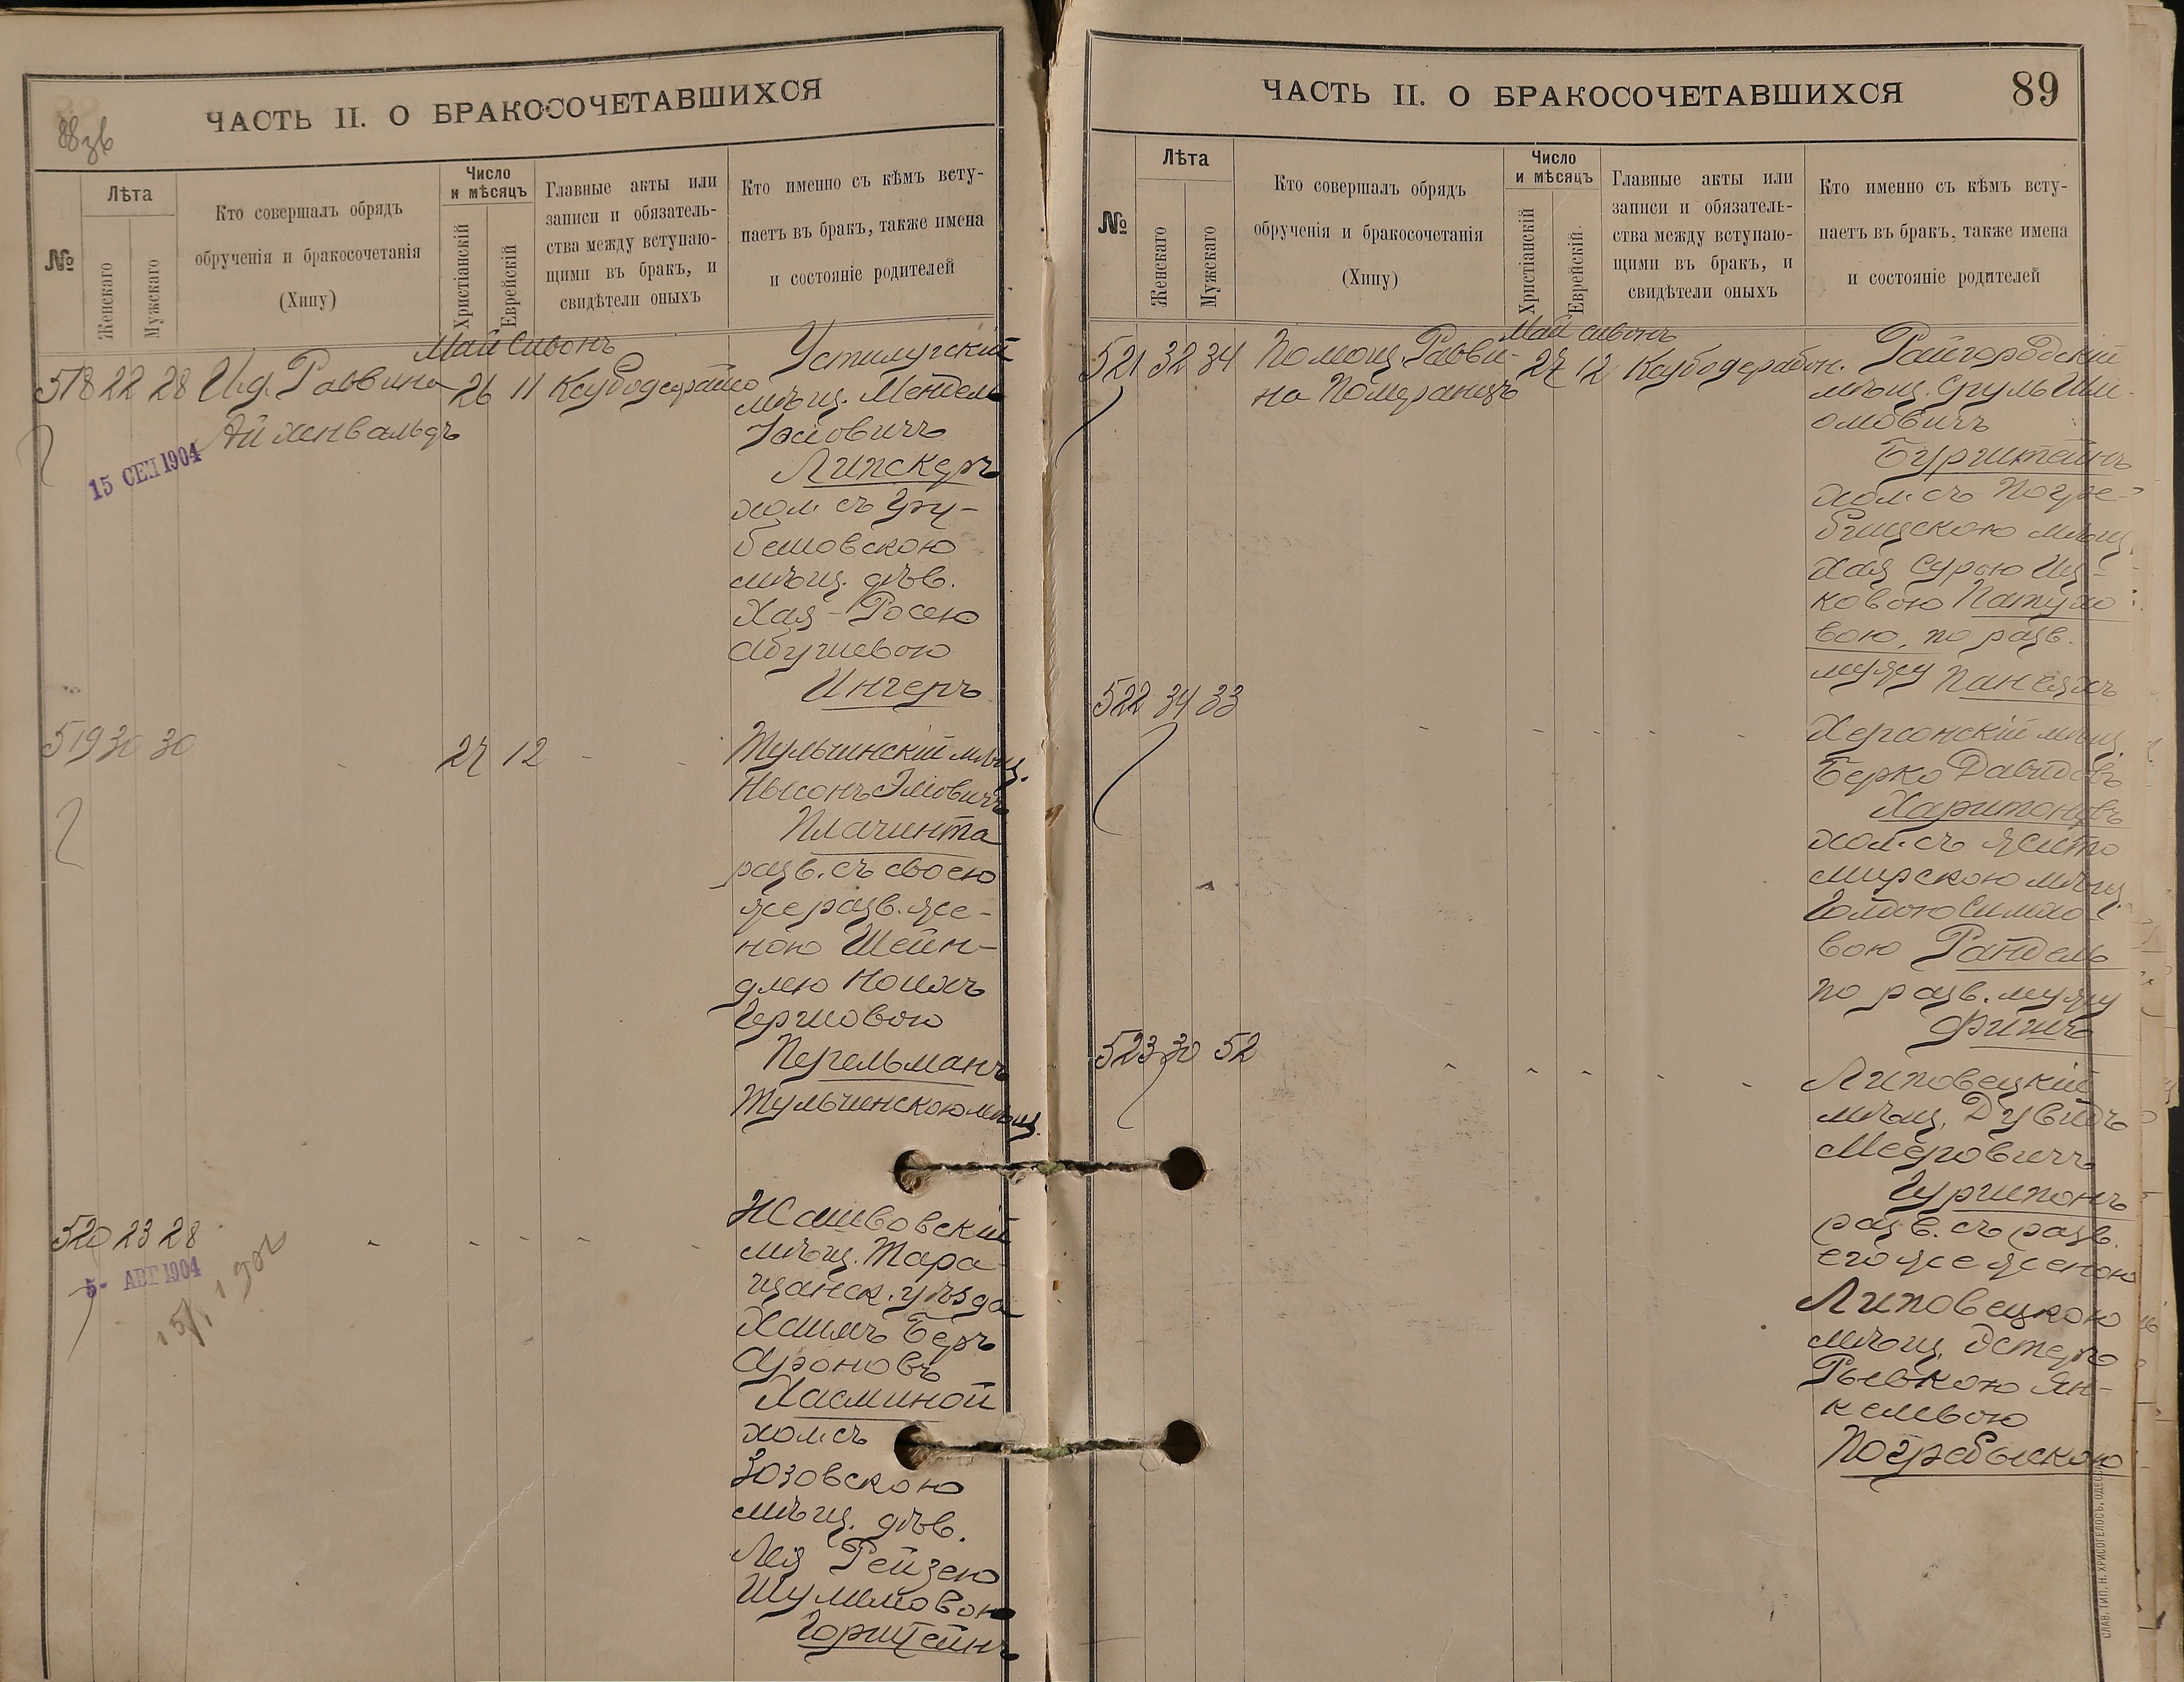 ЧАСТЬ II. О БРАКОСОЧЕТАВШИХСЯ
88 зв
№
Лѣта
Женскаго
Мужскаго
Кто совершалъ обрядъ
обрученія и бракосочетанія
(Хипу)
Число
и мѣсяцъ
Христіанскій
Еврейскій
Главные акты или
записи и обязатель-
ства между вступаю-
щими въ бракъ, и
свидѣтели оныхъ
Кто именно съ кѣмъ всту-
паетъ въ бракъ, также имена
и состояніе родителей
Май Сивонъ
518 22 28 И.д. Раввина 26 11
Айхенвальдъ
15 СЕН 1904
Устилугскій
мѣщ. Мендель
Липскеръ
хол. съ Гру-
бешовскою
мѣщ. дѣв.
Хая-Росею
Абушевою
Ингеръ
519 30 30 - 27 12 - -
Тульчинскій мѣщ.
Плачинта
разв. съ своею
же разв. же-
ною Шейн-
длею
Гершовою
Перельманъ
Тульчинскою мѣщ.
520 23 28 - - - - -
5- АВГ 1904
Жашвовскій
мѣщ. Тара-
щанск. уѣзда
Хаимъ Беръ
Ароновъ
Хасминой
хол. съ
Зозовскою
мѣщ. дѣв.
Лея Рейзею
Шулимовою
Горштейнъ
ЧАСТЬ II. О БРАКОСОЧЕТАВШИХСЯ
89
№
Лѣта
Женскаго
Мужскаго
Кто совершалъ обрядъ
обрученія и бракосочетанія
(Хипу)
Число
и мѣсяцъ
Христіанскій
Еврейскій.
Главные акты или
записи и обязатель-
ства между вступаю-
щими въ бракъ, и
свидѣтели оныхъ
Кто именно съ кѣмъ всту-
паетъ въ бракъ, также имена
и состояніе родителей
Май сивонъ
521 32 34 Помощ. Равви- 27 12
на Померанцъ
Райгородскій
мѣщ. Сруль Ши-
омовичъ
Бурштейнъ
хол. съ Погре-
бищскою мѣщ.
Хая Сурою Иц-
ковою
вою, по разв.
мужу
522 34 33 - - - - -
Херсонскій мѣщ.
Берко Давидовъ
Харитоновъ
хол. съ Жито
мирскою мѣщ.
Голдою Симхо-
вою Рандель
по разв. мужу
523 30 52 - - - - -
Липовецкій
мѣщ. Дувидъ
Мееровичъ
Гуршпонъ
разв. съ разв.
его же женою
Липовецкою
мѣщ. Эстерою
Рывкою Ян-
келевою
Погребыскою
СЛАВ. ТИП. Н. ХРИСОГЕЛОСЪ, ОДЕССА